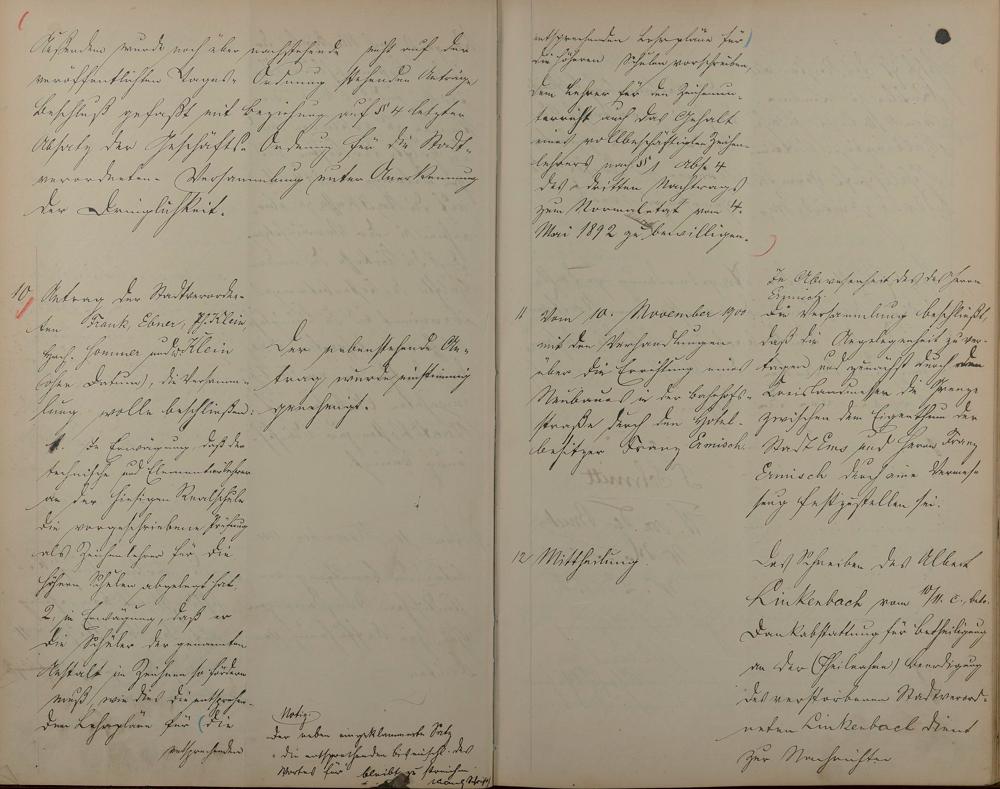 Außerdem wurde noch über nachstehende nicht auf der
veröffentlichten Tages-Ordnung stehenden Anträge
Beschluß gefaßt mit Beziehung auf § 4 letzter
Absatz der Geschäfts-Ordnung für die Stadt-
verordneten-Versammlung unter Anerkennung
der Dringlichkeit.
10, Antrag der Stadtverordne-
ten Frank, Ebner, Ph. Klein,
Hch. Hommer und Klein
(ohne Datum), die Versamm-
lung wolle beschließen:
1. In Erwägung, daß der
technische und Elementarlehrer
an der hiesigen Realschule
die vorgeschriebene Prüfung
als Zeichenlehrer für die
höhern Schulen abgelegt hat,
2, in Erwägung, daß er
die Schüler der genannten
Anstalt im Zeichnen so fördern
muß, wie dies die entsprechen-
den Lehrpläne für (die
entsprechenden
Der nebenstehende An-
trag wurde einstimmig
genehmigt.
Notiz
Der neben eingeklammerte Satz
die entsprechenden bis einschl. des
Wortes für bleibt zu streichen
entsprechenden Lehrpläne für)
die höheren Schulen vorschreiben,
dem Lehrer für den Zeichenun-
terricht auch das Gehalt
eines vollbeschäftigten Zeichen-
lehrers nach § 1 Abs. 4
des dritten Nachtrags
zum Normaletat vom 4.
Mai 1892 zu bewilligen.
11 Vom 10. November 1900
mit den Verhandlungen
über die Errichtung eines
Neubaues in der Bahnhof-
straße durch den Hotel-
besitzer Franz Ermisch.
In Abwesenheit des des Herrn
Ermisch:
Die Versammlung beschließt,
daß die Angelegenheit zu ver-
tagen und zunächst durch den
Kreislandmesser die Grenze
zwischen dem Eigenthum der
Stadt Ems und Herrn Franz
Ermisch durch eine Vermes-
sung festzustellen sei.
12, Mittheilung.
Das Schreiben des Albert
Linkenbach vom 10/11. c., betr.
Dankabstattung für Betheiligung
an der (Theilnahme) Beerdigung
des verstorbenen Stadtverord-
neten Linkenbach dient
zur Nachricht.